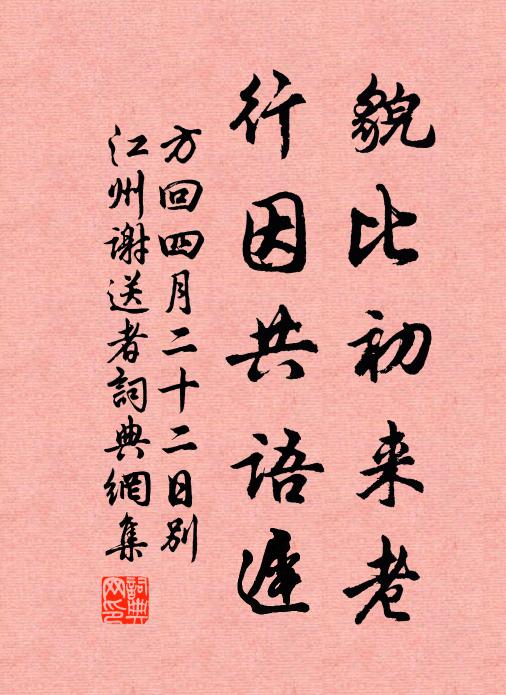 貌比初来老
行因共語遲
方回四月二十二日别
江州谢送者詞典網集
詞典网印